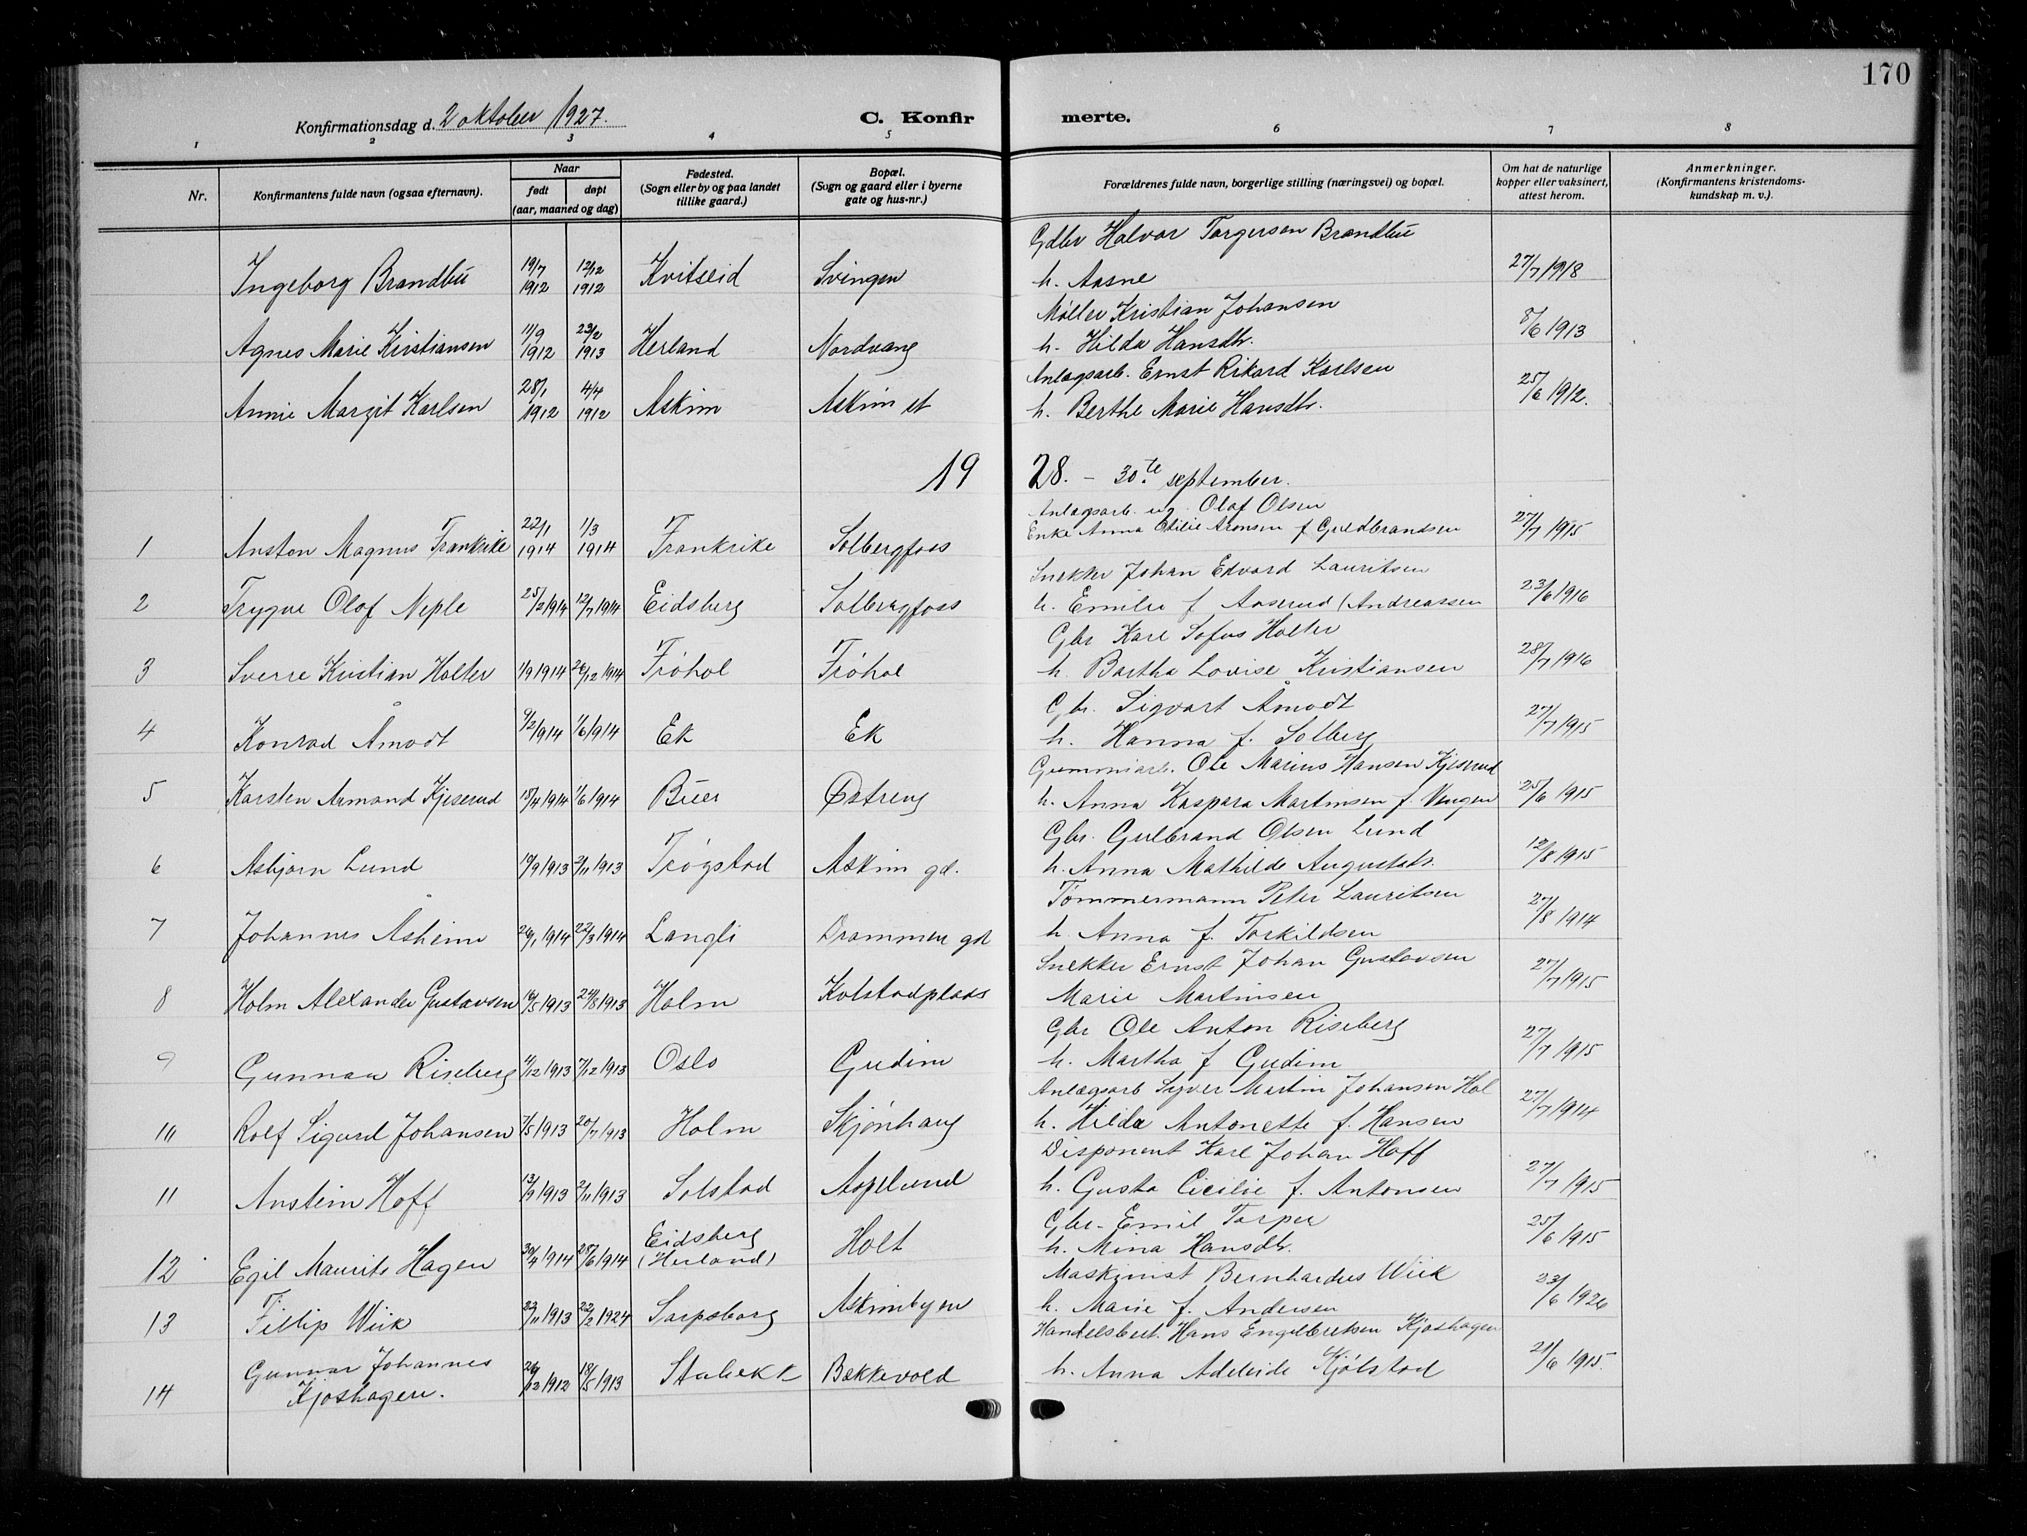 170
Konfirmationsdag d. 2 oktober 1927.
C. Konfirmerte.
1 2 3 4 5 6 7 8
Nr. | Konfirmantens fulde navn (ogsaa efternavn). | Naar født døpt (aar, maaned og dag) | Fødested. (Sogn eller by og paa landet tillike gaard.) | Bopæl. (Sogn og gaard eller i byerne gate og hus-nr.) | Forældrenes fulde navn, borgerlige stilling (næringsvei) og bopæl. | Om hat de naturlige kopper eller vaksinert, attest herom. | Anmerkninger. (Konfirmantens kristendomskundskap m. v.).
Ingeborg Brandbu 19/7 1912 12/12 1912 Kvitseid Svingen Gdbr Halvor Torgersen Brandbu h. Aasne 27/7 1918
Agnes Marie Kristiansen 11/9 1912 23/2 1913 Herland Nordvang Møller Kristian Johansen h. Hilda Hansdtr. 8/6 1913
Annie Margit Karlsen 28/1 1912 4/4 1912 Askim Askim st Anlægsarb. Ernst Rikard Karlsen h. Berthe Marie Hansdtr. 25/6 1912.
19 28. – 30te september.
1 Anston Magnus Frankrike 22/1 1914 1/3 1914 Frankrike Solbergfoss Anlægsarb. ug. Olaf Olsen Enke Anna Otilie Aronsen f Guldbrandsen 27/7 1915
2 Trygve Olaf Neple 25/2 1914 12/7 1914 Eidsberg Solbergfoss Snekker Johan Edvard Lauritsen h. Emilie f Aaserud (Andreassen 23/6 1916
3 Sverre Kristian Holter 1/9 1914 26/12 1914 Frøhol Frøhol Gbr Karl Sofus Holter h. Bartha Lovise Kristiansen 28/7 1916
4 Konrad Åmodt 9/2 1914 1/6 1914 Ek Ek Gbr. Sigvart Åmodt h. Hanna f. Solberg 27/7 1915
5 Karsten Armand Kjeserud 15/4 1914 1/6 1914 Buer Østreng Gummiarb. Ole Marius Hansen Kjeserud h. Anna Kaspara Martinsen f. Vengen 25/6 1915
6 Asbjørn Lund 19/9 1913 2/11 1913 Trøgstad Askim gd. Gbr. Gulbrand Olsen Lund h. Anna Mathilde Augustdtr. 12/8 1915
7 Johannes Åsheim 26/1 1914 22/3 1914 Langli Drammen gd Tømmermann Peter Lauritsen h. Anna f. Torkildsen 27/8 1914
8 Holm Alexander Gustavsen 16/5 1913 24/8 1913 Holm Kolstadplads Snekker Ernst Johan Gustavsen Marie Martinsen 27/7 1915
9 Gunnar Riseberg 4/12 1913 7/12 1913 Oslo Gudim Gbr Ole Anton Riseberg h. Martha f Gudim 27/7 1915
10 Rolf Sigurd Johansen 7/5 1913 20/7 1913 Holm Skjønhaug Anlægsarb Syver Martin Johansen Hol h. Hilda Antonette f. Hansen 27/7 1914
11 Anstein Hoff 13/9 1913 2/11 1913 Solstad Aspelund Disponent Karl Johan Hoff h. Gusta Cicilie f. Antonsen 27/7 1915
12 Egil Maurits Hagen 30/4 1914 28/6 1914 Eidsberg (Herland) Holt Gbr. Emil Torper h. Mina Hansdtr. 25/6 1915
13 Fillip Wiik 22/11 1913 22/2 1924 Sarpsborg Askimbyen Maskinist Bernhardus Wiik h. Marie f. Andersen 23/6 1926
14 Gunnar Johannes Kjoshagen. 26/12 1912 18/5 1913 Stabekk Bækkevold Handelsbest. Hans Engelbretsen Kjoshagen h. Anna Adeleide Kjølstad 21/6 1915